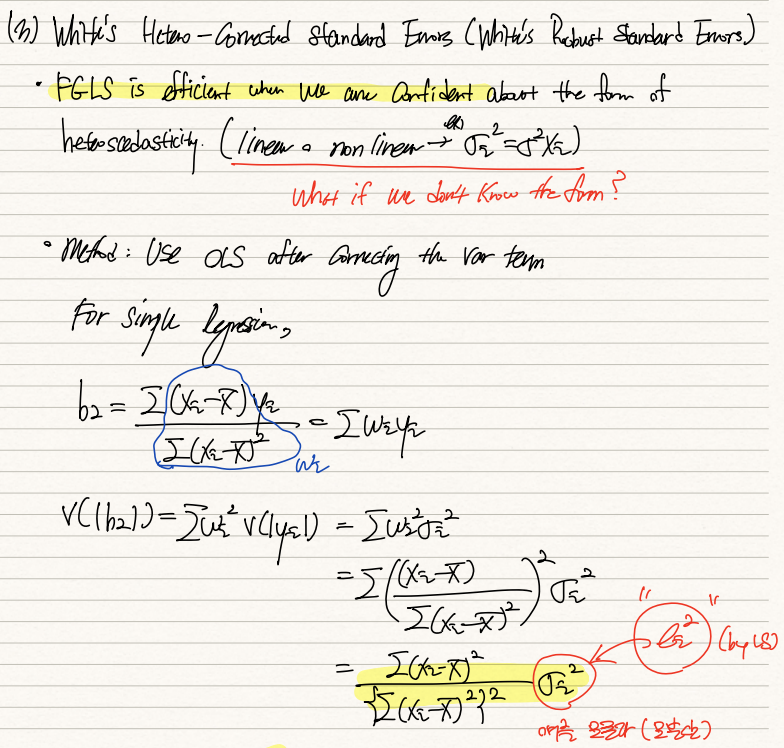 (3) White's Hetero-Corrected Standard Errors (White's Robust Standard Errors)
• FGLS is efficient when we are confident about the form of
heteroscedasticity. (linear or non linear → ex) σᵢ² = σ²Xᵢ)
What if we don't know the form?
• Method: Use OLS after correcting the var term
For single Regression,
b₂ = Σ(Xᵢ-X̄)yᵢ / Σ(Xᵢ-X̄)² = Σwᵢyᵢ
wᵢ
V(b₂) = Σwᵢ² V(yᵢ) = Σwᵢ²σᵢ²
= Σ((Xᵢ-X̄) / Σ(Xᵢ-X̄)²)² σᵢ²
= Σ(Xᵢ-X̄)² / {Σ(Xᵢ-X̄)²}² σᵢ²
"eᵢ²" (by LS)